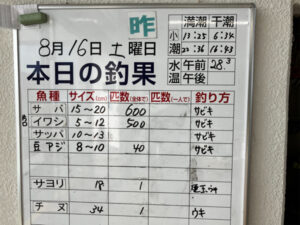 昨
8月16日土曜日
満潮 干潮
小 13:25 6:34
潮 22:36 16:43
本日の釣果
水 午前 28.3
温 午後
魚種 サイズ(cm) 匹数(全体で) 匹数(一人で) 釣り方
サバ 15~20 600 サビキ
イワシ 5~12 500 サビキ
サッパ 10~13 サビキ
豆アジ 8~10 40 サビキ
サヨリ 18 1
チヌ 34 1 ウキ